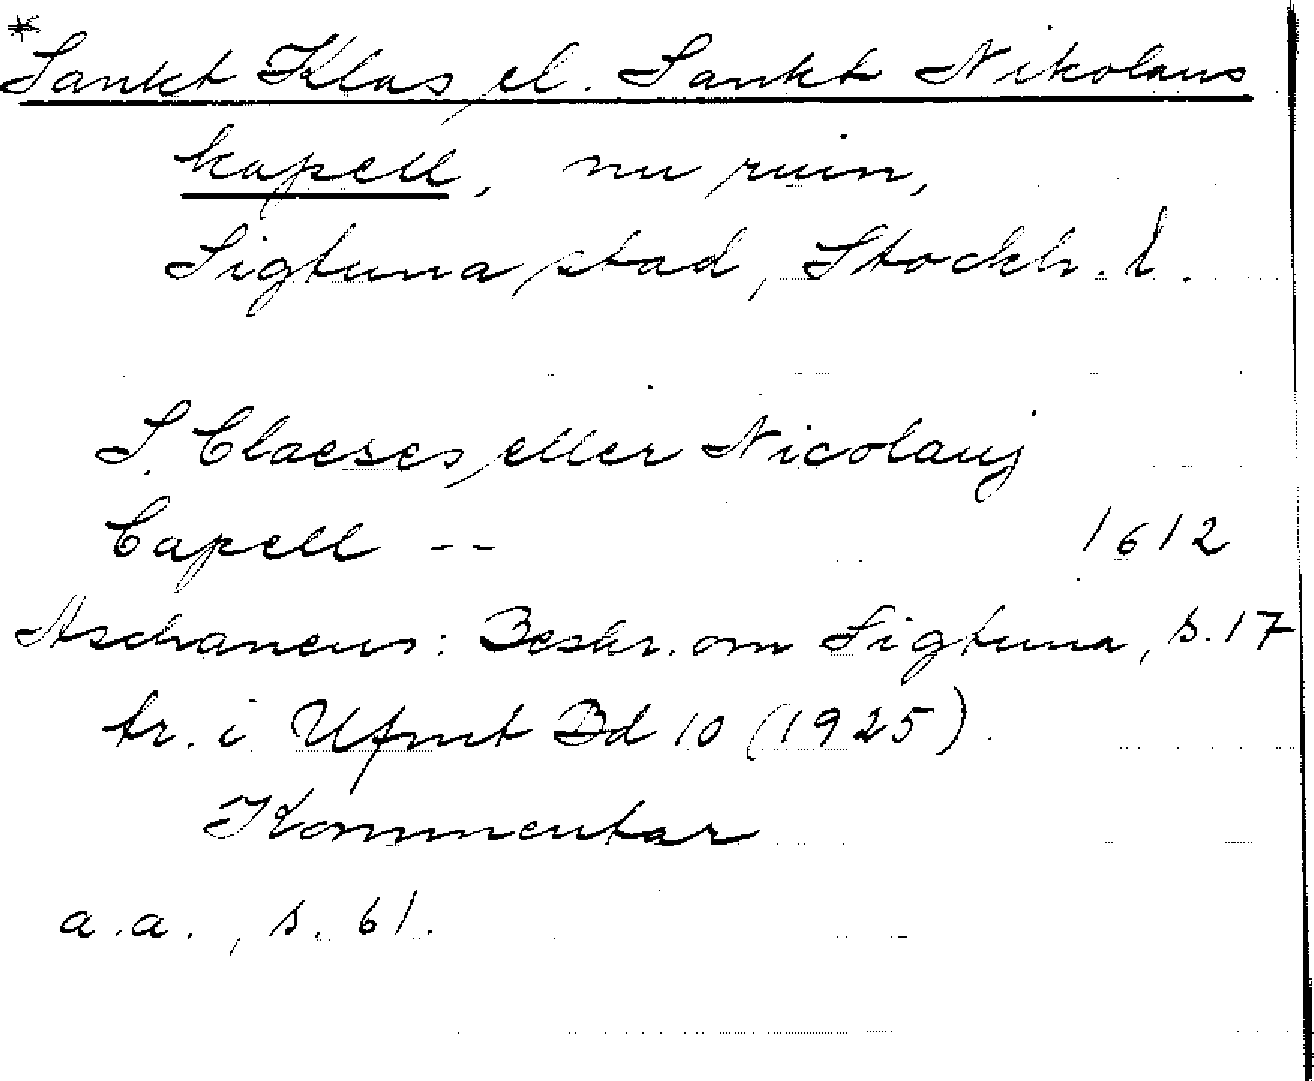 *
Sankt Klas el. Sankt Nikolaus
kapell, nu ruin,
Sigtuna stad, Stockh. l.
S. Claeses eller Nicolauj
Capell -- 1612
Aschaneus: Beskr. om Sigtuna, s. 17
tr. i Ufmt Bd 10 (1925).
Kommentar
a.a., s. 61.